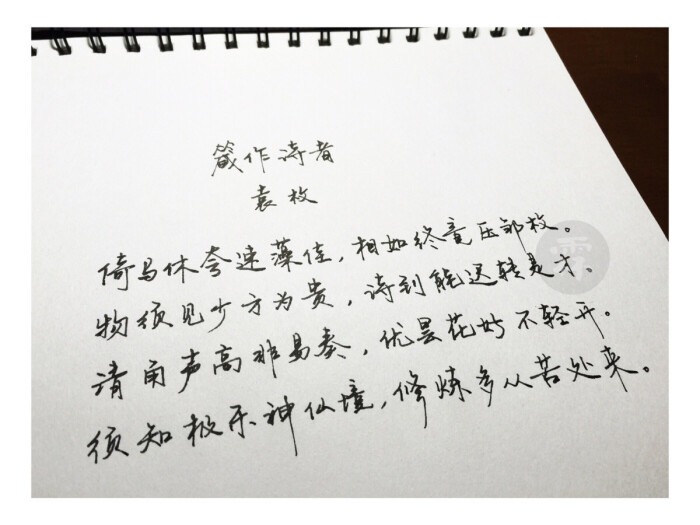 箴作诗者
袁枚
倚马休夸速藻佳，相如终竟压邹枚。
物须见少方为贵，诗到能迟转是才。
清角声高非易奏，优昙花好不轻开。
须知极乐神仙境，修炼多从苦处来。